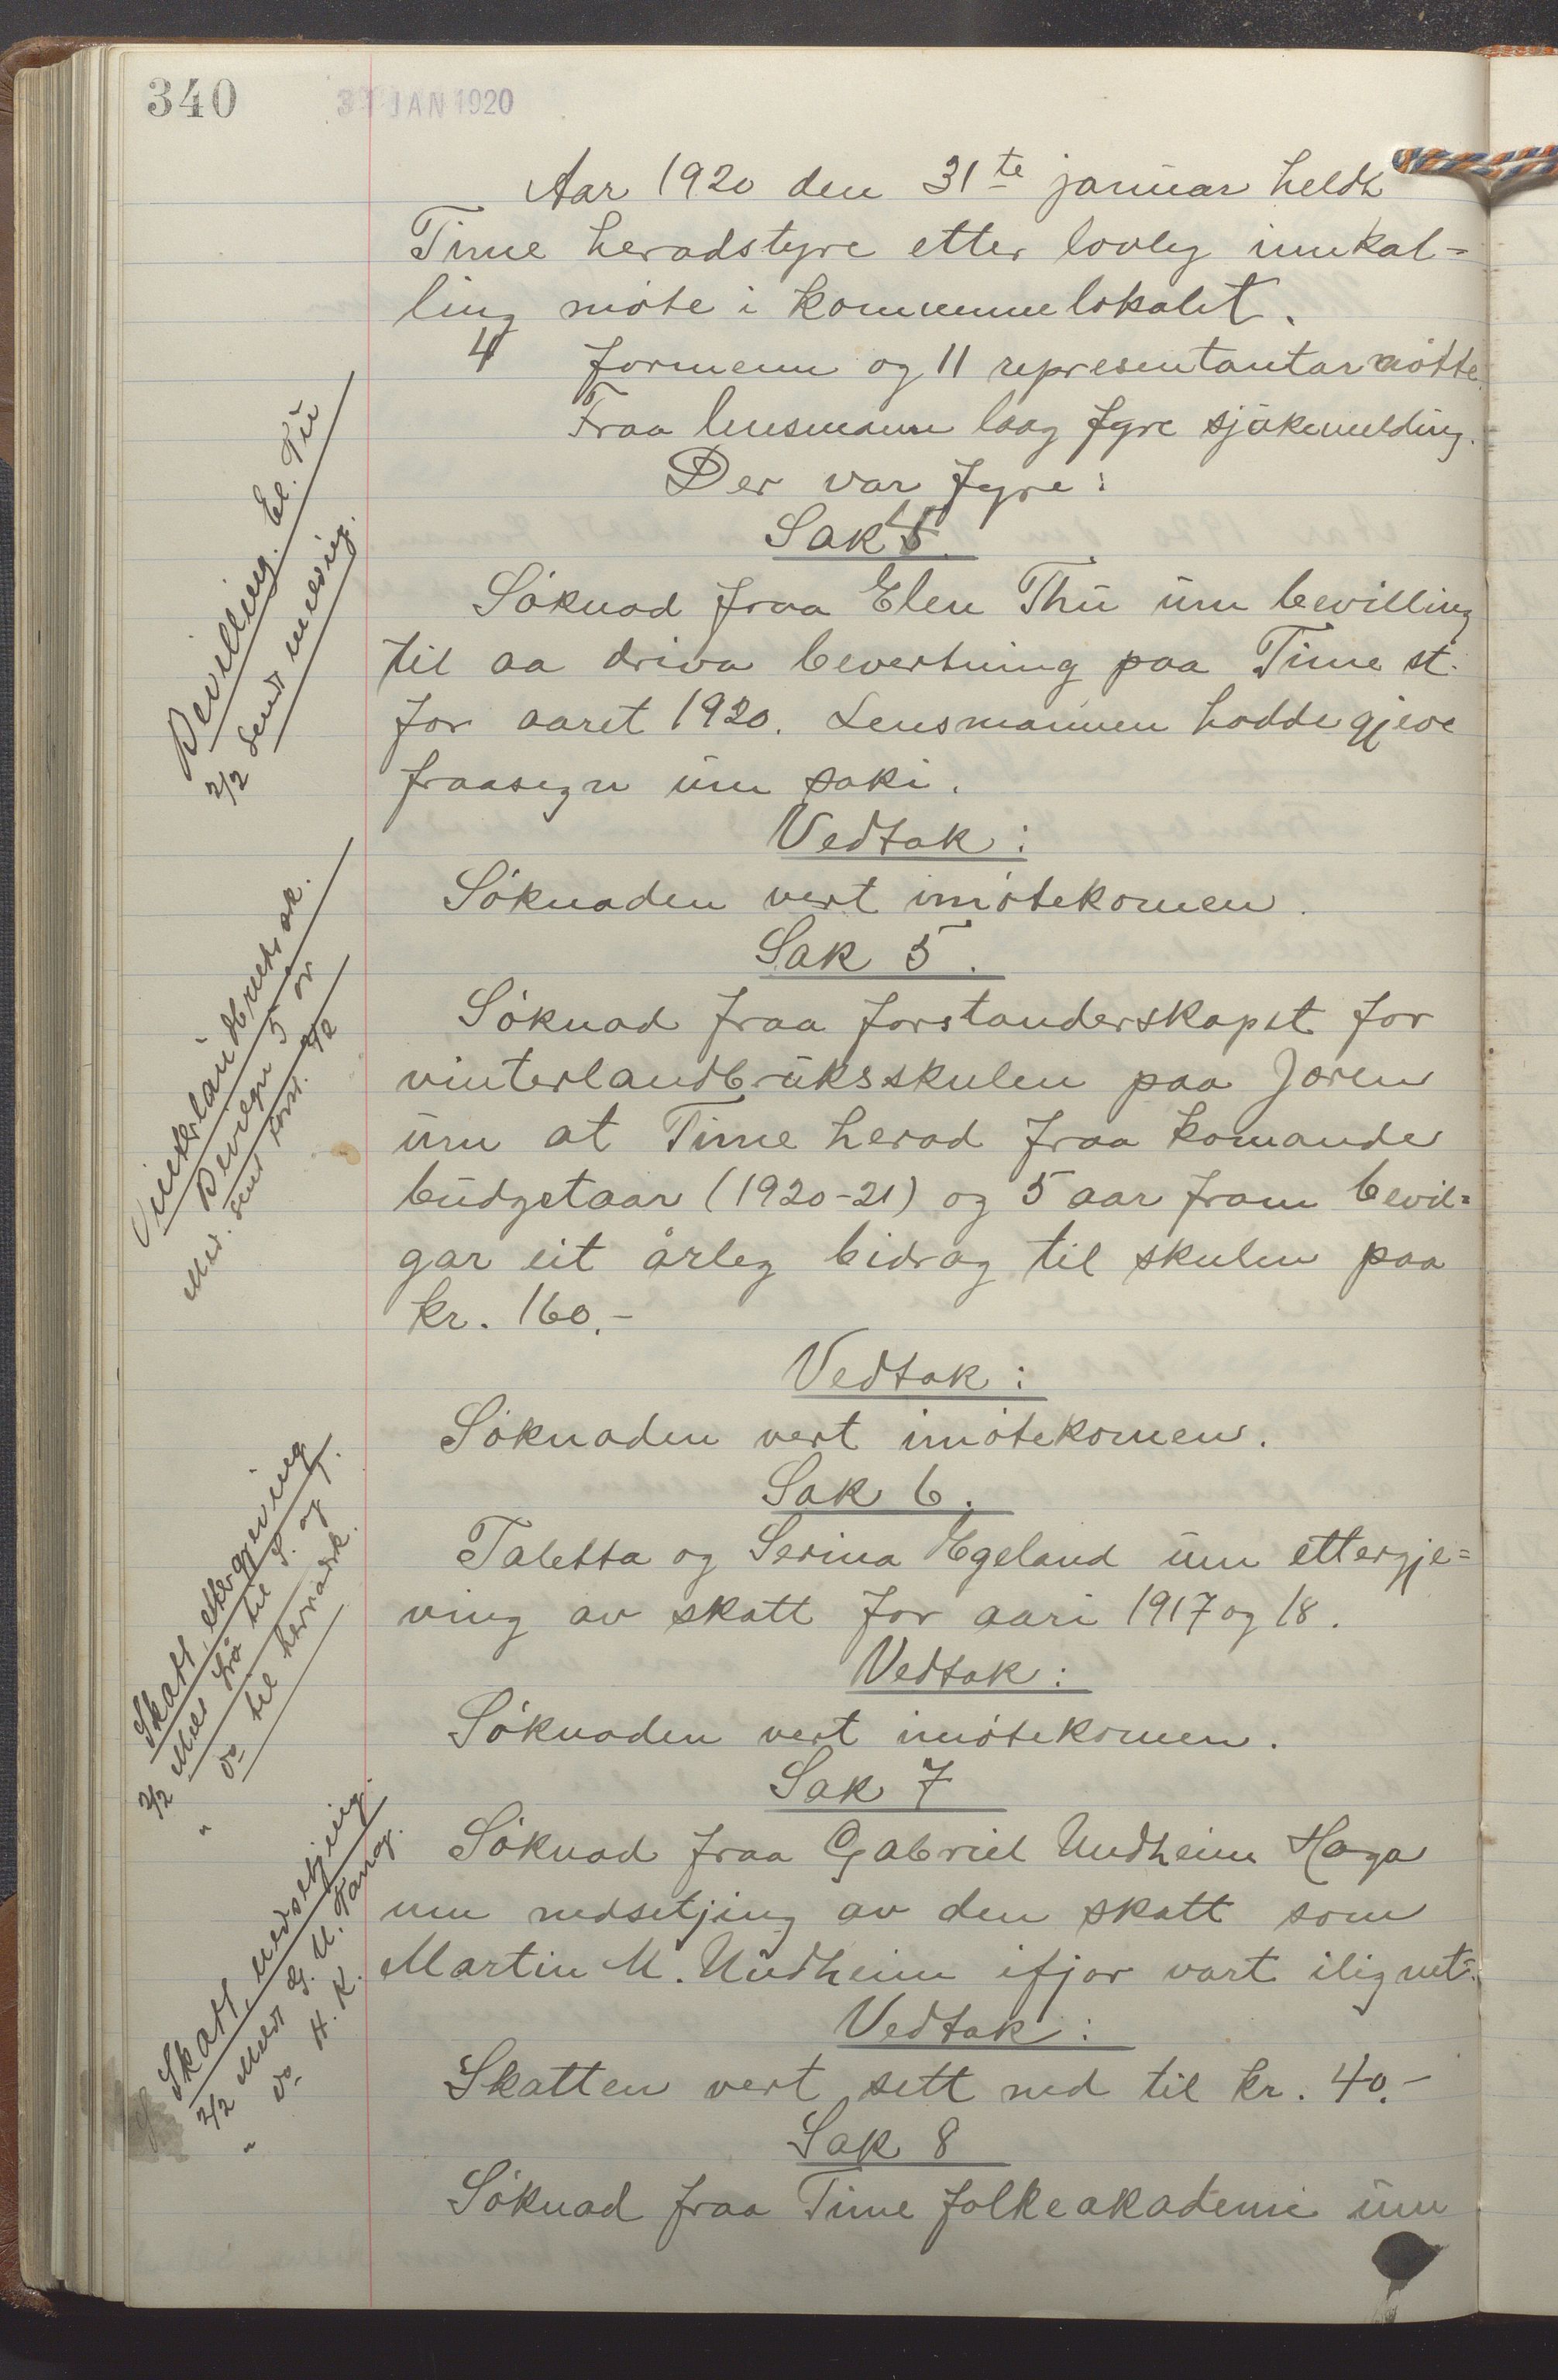 340
31 JAN 1920
Aar 1920 den 31te januar heldt
Time heradstyre etter lovleg innkal=
ling møte i kommunelokalet.
4 formenn og 11 representantar møtte.
Fraa lensmann laag fyre sjukemelding.
Der var fyre:
Sak 4.
Søknad fraa Elen Thu um bevilling
til aa driva bevertning paa Time st.
for aaret 1920. Lensmannen hadde gjeve
fraasegn um saki.
Vedtak:
Søknaden vert imøtekomen.
Sak 5.
Søknad fraa forstanderskapet for
vinterlandbruksskulen paa Jæren
um at Time herad fraa komande
budgetaar (1920-21) og 5 aar fram bevil=
gar eit årleg bidrag til skulen paa
kr. 160.-
Vedtak:
Søknaden vert imøtekomen.
Sak 6.
Taletta og Serina Egeland um ettergje=
ving av skatt for aari 1917 og 18.
Vedtak:
Søknaden vert imøtekomen.
Sak 7
Søknad fraa Gabriel Undheim Haga
um nedsetjing av den skatt som
Martin M. Undheim ifjor vart ilignet.
Vedtak:
Skatten vert sett ned til kr. 40.-
Sak 8
Søknad fraa Time folkeakademi um
Bevilling. El. Tu
2/2 sendt melding.
Vinterlandbruksk.
Bevilgn 5 år
Med. sendt forst. 2/2
Skatt, ettergjeving
2/2 Meld frå til S. og T.
" do til herradsk.
Skatt, nedsetjing.
2/2 Meldt G. U.
" do H. K.